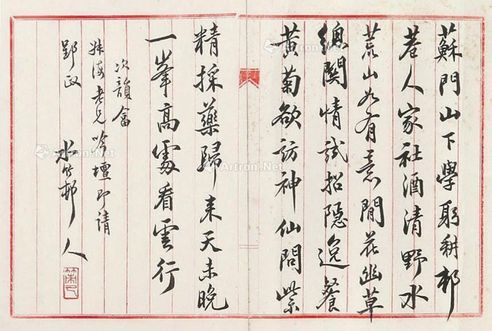 蘇門山下學躬耕邨
巷人家社酒清野水
荒山如有意閒花幽草
總關情試招隱逸餐
黃菊欲訪神仙問紫
精採藥歸來天未晚
一峯高處看雲行
次韻畣
海老兄吟壇即請
郢政
水竹邨人
Artron.Net